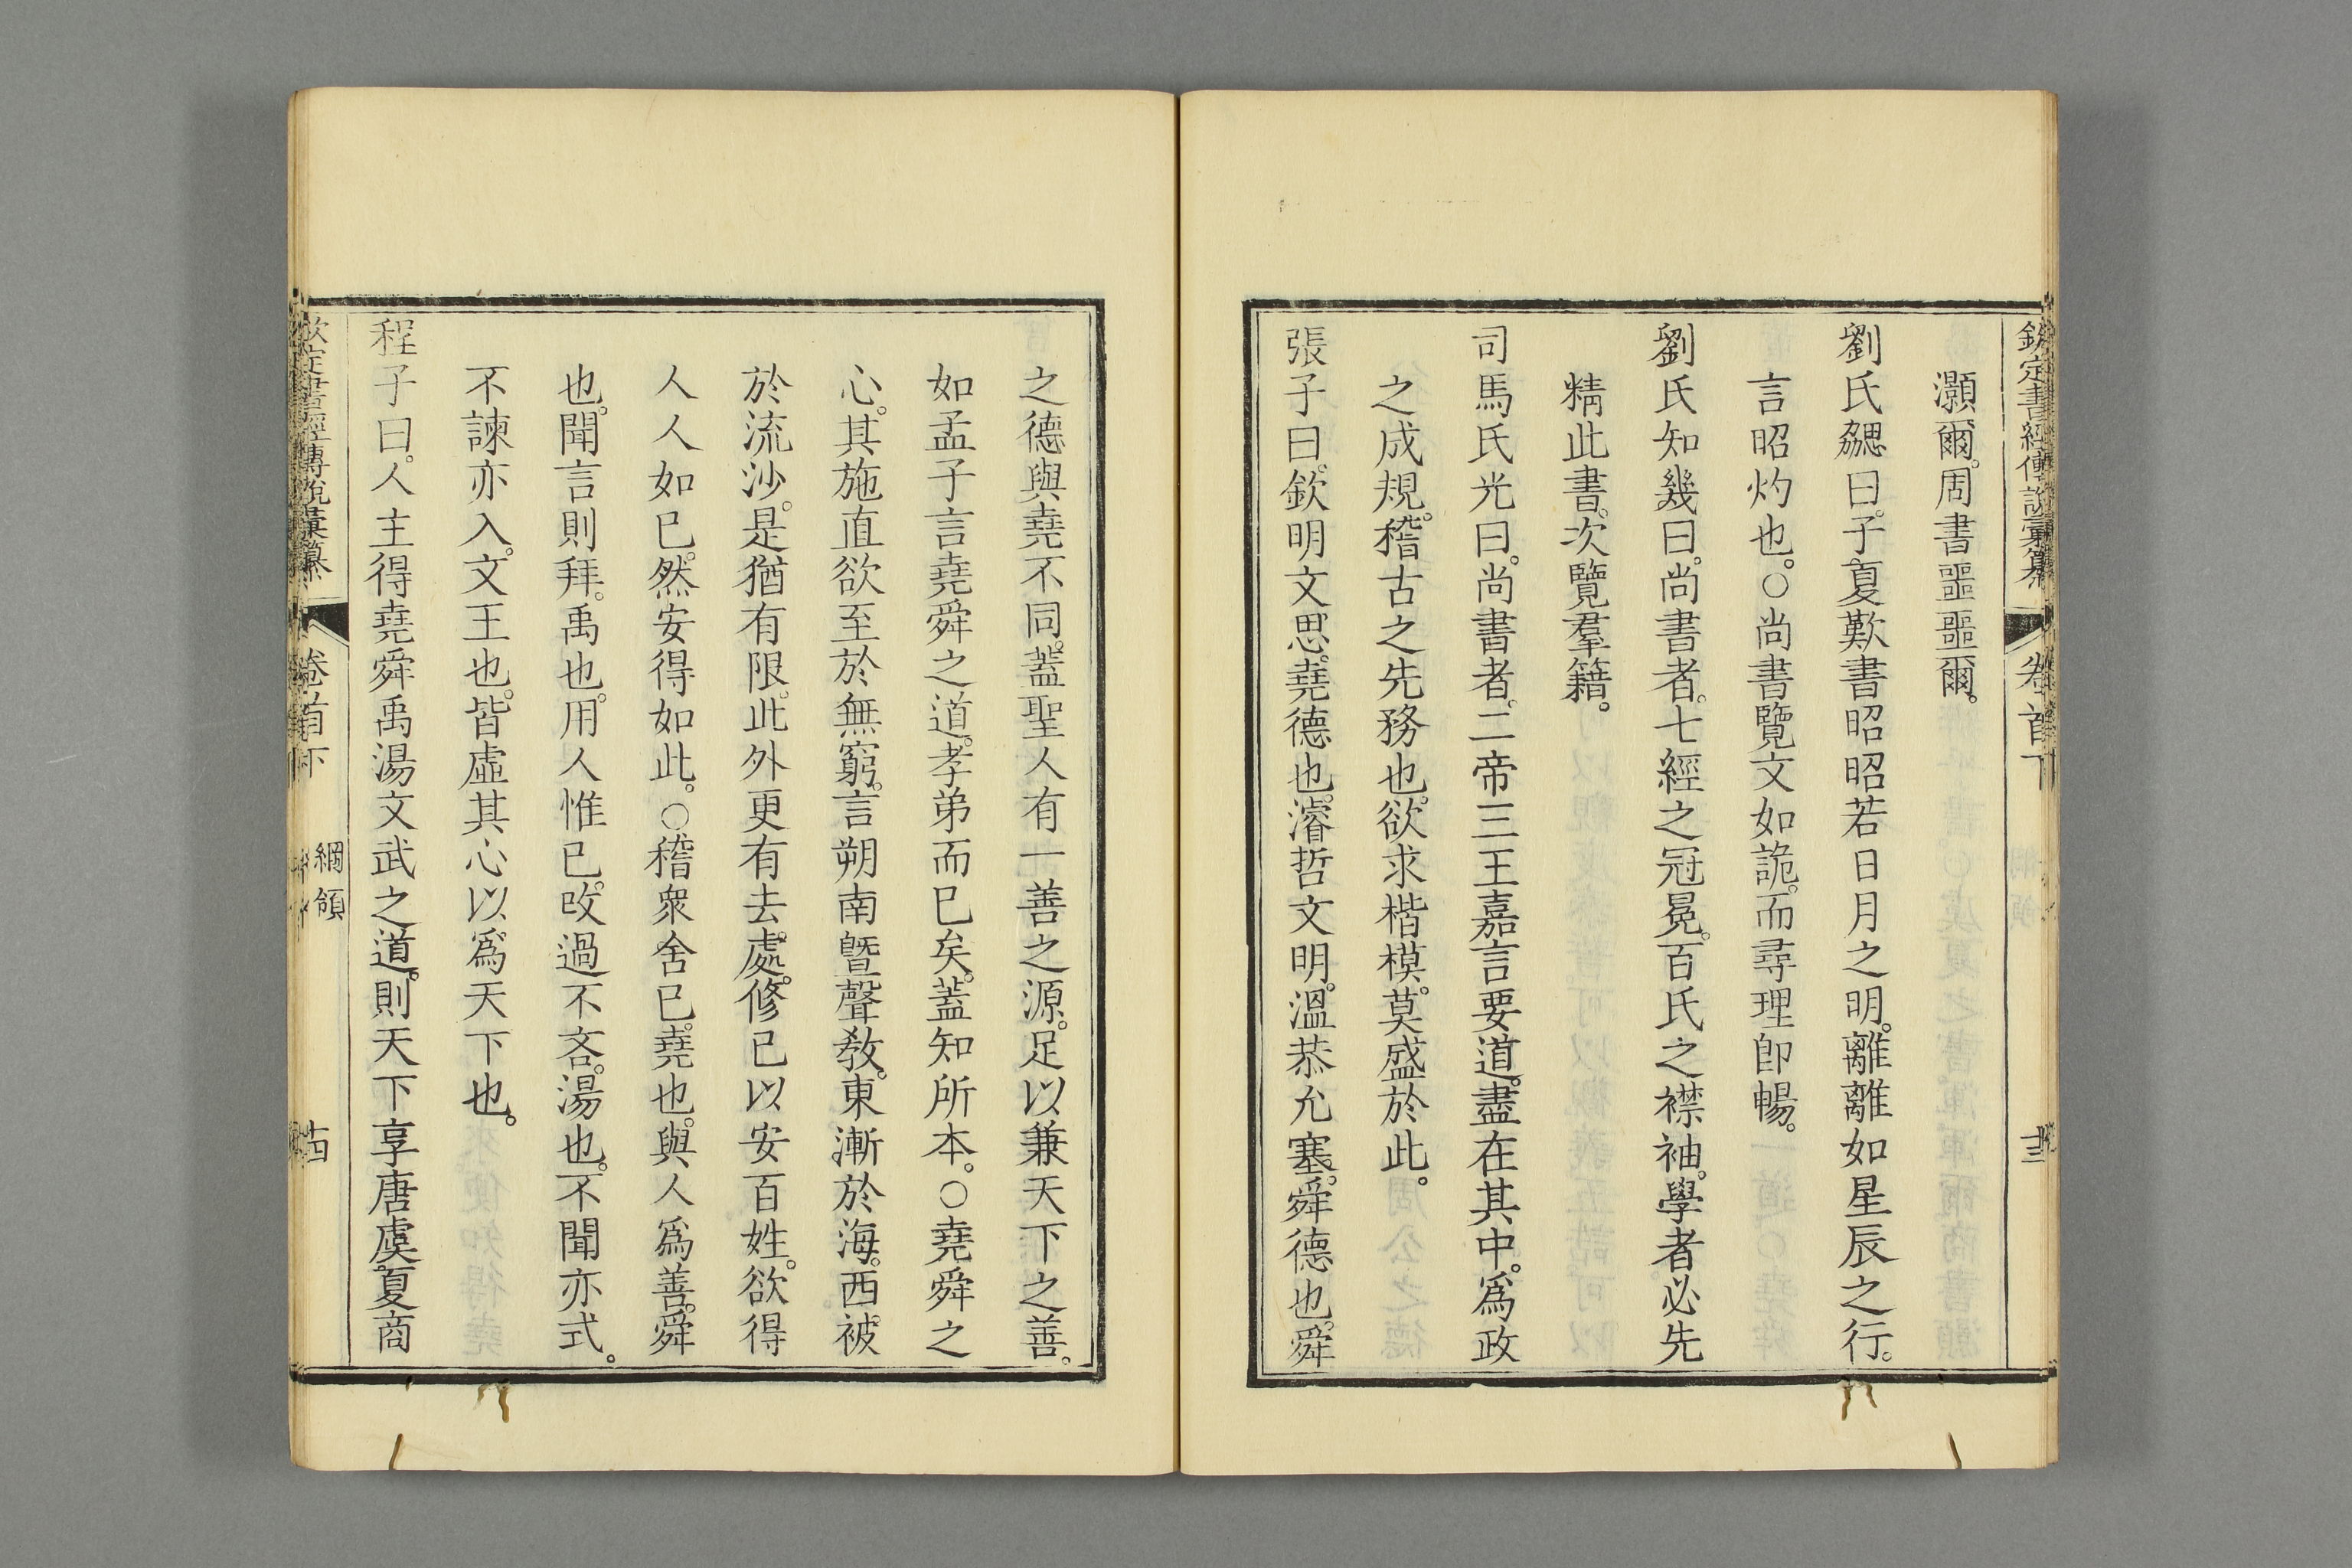 欽定書經傳說彙纂 卷首下
灝爾。周書噩噩爾。
劉氏勰曰。子夏歎書昭昭若日月之明。離離如星辰之行。
言昭灼也。○尚書覽文如詭。而尋理卽暢。
劉氏知幾曰。尚書者。七經之冠冕。百氏之襟袖。學者必先
精此書。次覽羣籍。
司馬氏光曰。尚書者。二帝三王嘉言要道。盡在其中。爲政
之成規。稽古之先務也。欲求楷模。莫盛於此。
張子曰。欽明文思。堯德也。濬哲文明。溫恭允塞。舜德也。舜
之德與堯不同。蓋聖人有一善之源。足以兼天下之善。
如孟子言堯舜之道。孝弟而已矣。蓋知所本。○堯舜之
心。其施直欲至於無窮。言朔南暨聲敎。東漸於海。西被
於流沙。是猶有限。此外更有去處。修已以安百姓。欲得
人人如已。然安得如此。○稽衆舍已。堯也。與人爲善。舜
也。聞言則拜。禹也。用人惟已。改過不吝。湯也。不聞亦式。
不諫亦入。文王也。皆虛其心以爲天下也。
程子曰。人主得堯舜禹湯文武之道。則天下享唐虞夏商
欽定書經傳說彙纂 卷首下 綱領